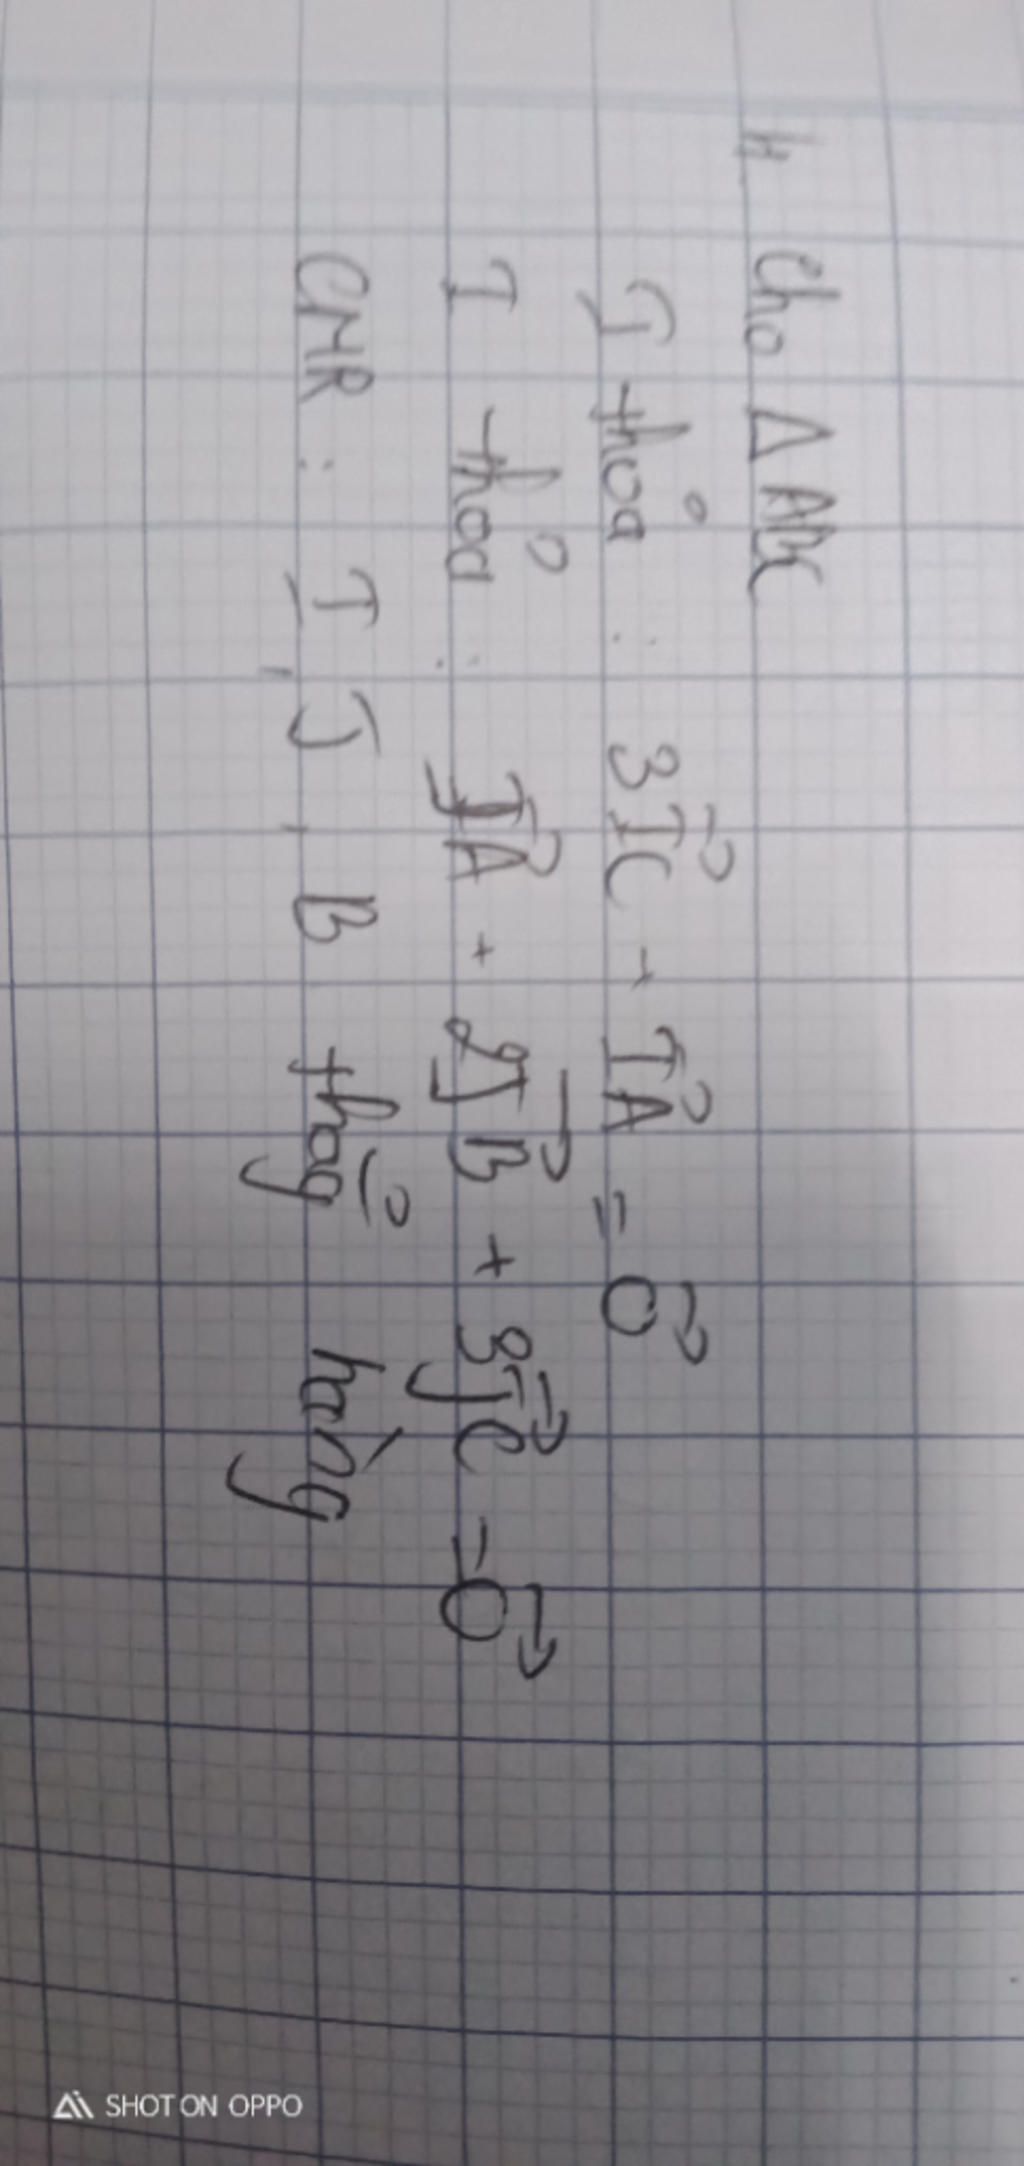 4. Cho Δ ABC
I thoả : 3IC + IA = 0
J thoả : JA + 2JB + 3JC = 0
CMR : I, J, B thẳg hàng
SHOT ON OPPO